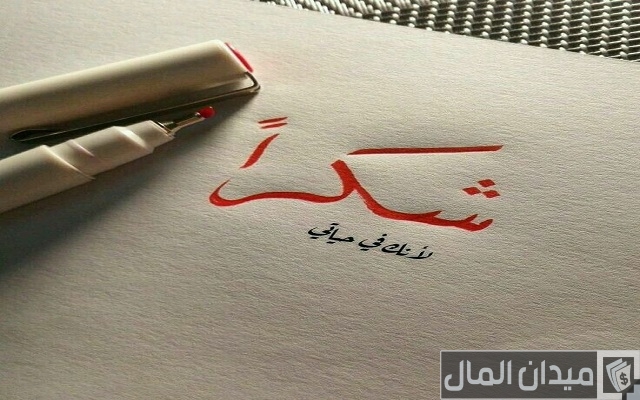 شكراً
لأنك في حياتي
ميدان المال